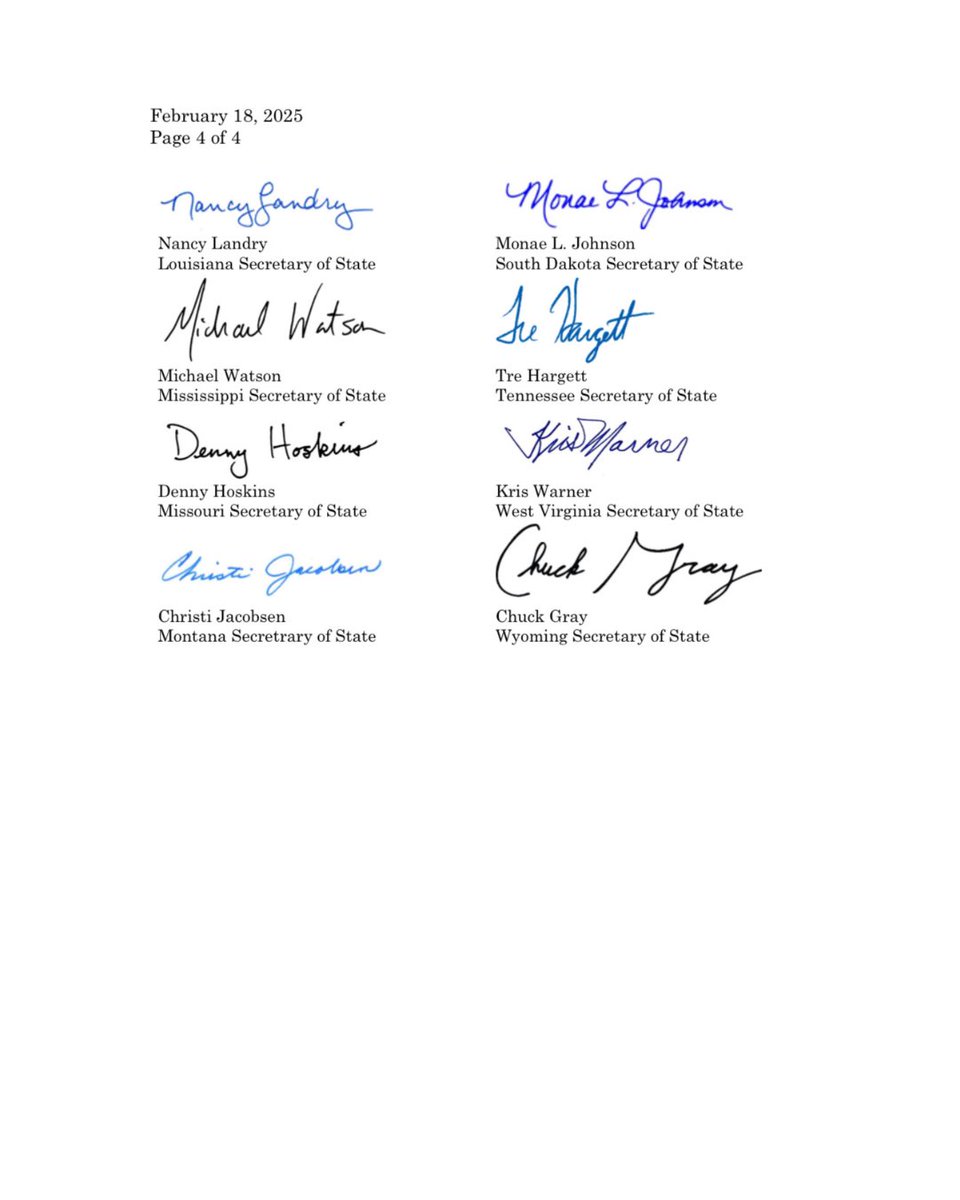 February 18, 2025
Page 4 of 4
Nancy Landry
Nancy Landry
Louisiana Secretary of State
Monae L. Johnson
Monae L. Johnson
South Dakota Secretary of State
Michael Watson
Michael Watson
Mississippi Secretary of State
Tre Hargett
Tre Hargett
Tennessee Secretary of State
Denny Hoskins
Denny Hoskins
Missouri Secretary of State
Kris Warner
Kris Warner
West Virginia Secretary of State
Christi Jacobsen
Christi Jacobsen
Montana Secretrary of State
Chuck Gray
Chuck Gray
Wyoming Secretary of State